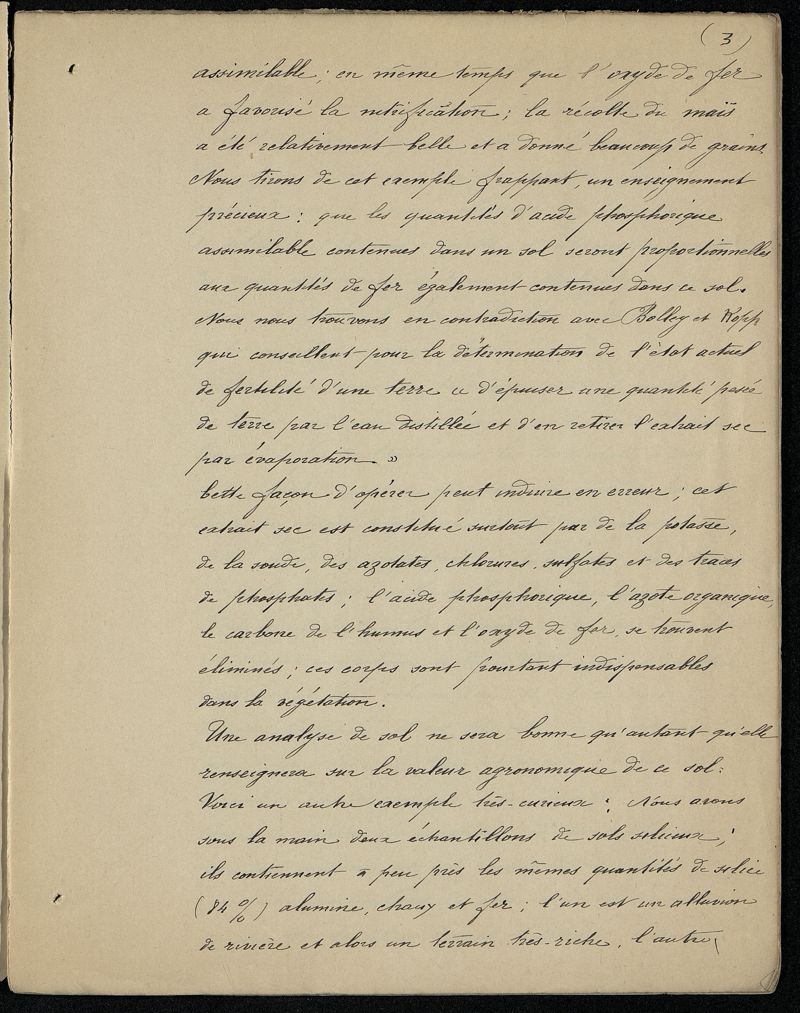 (3)
assimilable; en même temps que l'oxyde de fer
a favorisé la nitrification; la récolte du maïs
a été relativement belle et a donné beaucoup de grains.
Nous tirons de cet exemple frappant, un enseignement
précieux: que les quantités d'acide phosphorique
assimilable contenues dans un sol seront proportionnelles
aux quantités de fer également contenues dans ce sol.
Nous nous trouvons en contradiction avec Bolley et Kopp
qui conseillent pour la détermination de l'état actuel
de fertilité d'une terre « d'épuiser une quantité pesée
de terre par l'eau distillée et d'en retirer l'extrait sec
par évaporation. »
Cette façon d'opérer peut induire en erreur; cet
extrait sec est constitué surtout par de la potasse,
de la soude, des azotates, chlorures, sulfates et des traces
de phosphates; l'acide phosphorique, l'azote organique,
le carbone de l'humus et l'oxyde de fer, se trouvent
éliminés; ces corps sont pourtant indispensables
dans la végétation.
Une analyse de sol ne sera bonne qu'autant qu'elle
renseignera sur la valeur agronomique de ce sol:
Voici un autre exemple très-curieux: Nous avons
sous la main deux échantillons de sols silicieux;
ils contiennent à peu près les mêmes quantités de silice
(84 %) alumine, chaux et fer; l'un est un alluvion
de rivière et alors un terrain très-riche, l'autre,